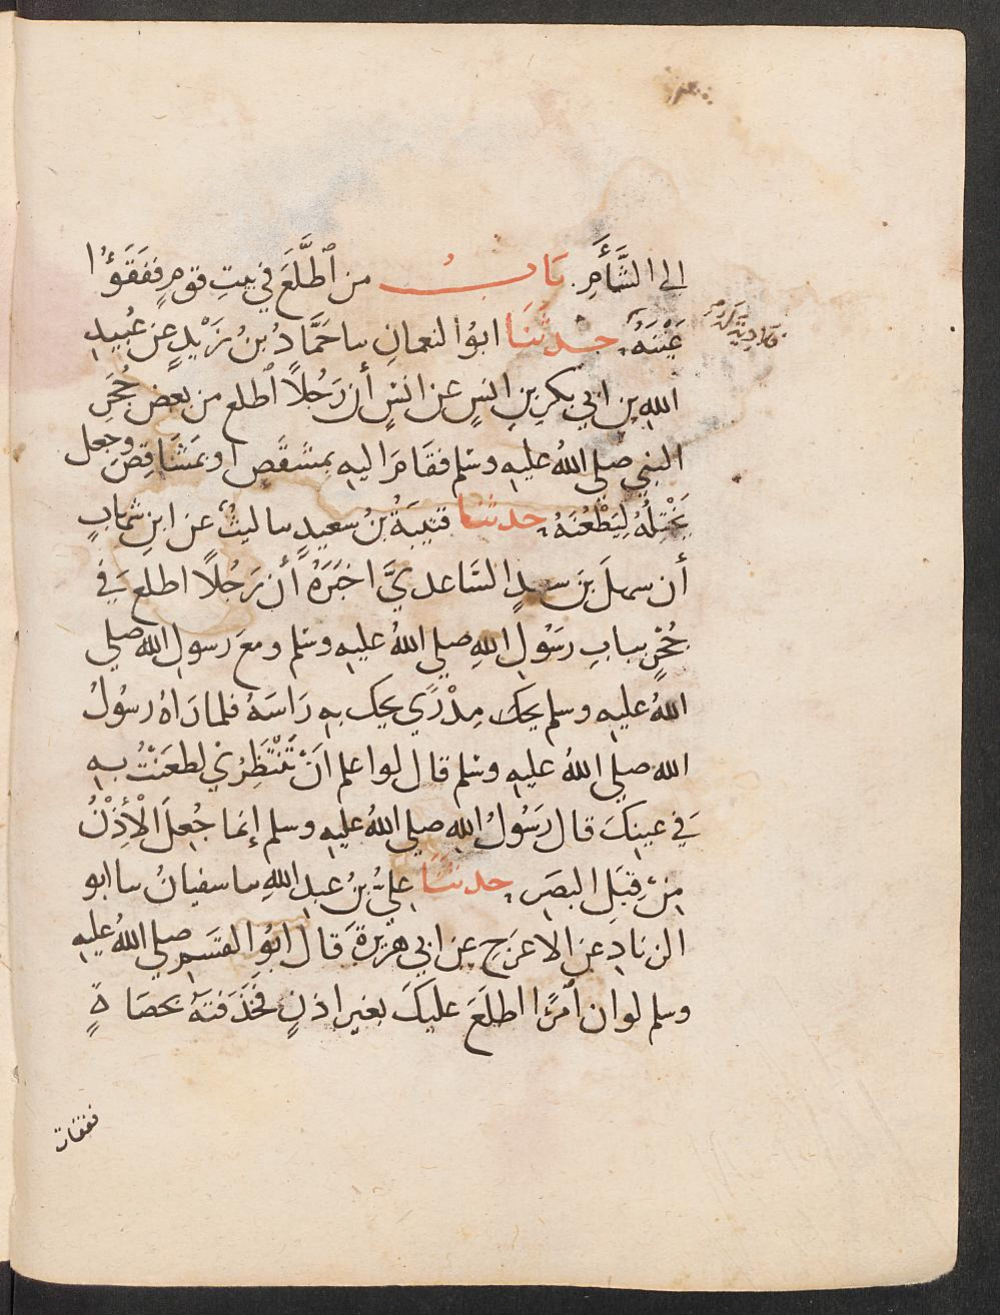 إلى الشَّأْمِ. بَابُ من ٱطَّلَعَ في بيتِ قومٍ ففَقَؤُا
عَيْنَهُ، حدثَنَا ابوُ النعمانِ سا حَمَّادُ بنُ زَيْدٍ عن عُبيدِ
فلا دية له
اللهِ بنِ ابي بكرِ بنِ انسٍ عن انسٍ أن رَجُلاً ٱطلع من بعض حُجَرِ
النبي صلى اللهُ عليهِ وسلم فقَامَ اليهِ بمشقَصٍ او بمَشَاقِصَ وجعل
يَخْتِلُهُ لِيَطْعُنَهُ، حدثنا قتيبَةُ بنُ سعيدٍ سا ليثٌ عن ابنِ شهابٍ
أن سهلَ بنَ سعدٍ الساعديَّ اخبَرَهُ أن رَجُلاً اطلعَ في
جُحْرٍ بباب رسُولِ اللهِ صلى اللهُ عليهِ وسلم ومعَ رسولِ اللهِ صلى
اللهُ عليهِ وسلم يحك مِدْرًي يحك به رَاسَهُ فلما رَاهُ رسُولُ
الله صلى اللهُ عليهِ وسلم قال لو اعلم اَنْ تَنْتَظِرُنِي لطعَنْتُ بهِ
في عينِكَ قال رَسُولُ اللهِ صلى اللهُ عليهِ وسلم إنما جُعِلَ الْأِذْنُ
مِنْ قِبَلِ البصَرِ، حدثنا عليُّ بنُ عبدِ اللهِ سا سفيانُ سا ابو
الزنادِ عن الاعرَجِ عن ابي هُرَيرةَ قال ابوُ القسم صلى اللهُ عليهِ
وسلم لو ان ٱمرًا اطلَعَ عليكَ بغيرِ اذنٍ فخَذَفتَهُ بحصَاةٍ
ففقات